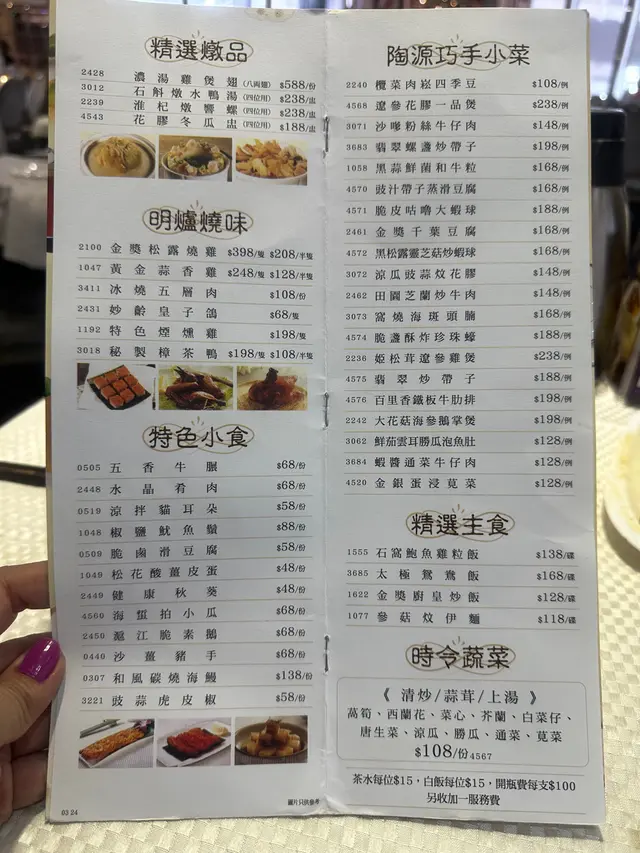 精選燉品
2428 濃湯雞煲翅(八両翅) $588/份
3012 石斛燉水鴨湯(四位用) $238/盅
2239 淮杞燉響螺(四位用) $238/盅
4543 花膠冬瓜盅(四位用) $188/盅
明爐燒味
2100 金獎松露燒雞 $398/隻 $208/半隻
1047 黃金蒜香雞 $248/隻 $128/半隻
3411 冰燒五層肉 $108/份
2431 妙齡皇子鴿 $68/隻
1192 特色煙燻雞 $198/隻
3018 秘製樟茶鴨 $198/隻 $108/半隻
特色小食
0505 五香牛𦟌 $68/份
2448 水晶肴肉 $68/份
0519 涼拌貓耳朵 $58/份
1048 椒鹽魷魚鬚 $88/份
0509 脆鹵滑豆腐 $58/份
1049 松花酸薑皮蛋 $48/份
2449 健康秋葵 $48/份
4560 海蜇拍小瓜 $68/份
2450 滬江脆素鵝 $68/份
0440 沙薑豬手 $68/份
0307 和風碳燒海鰻 $138/份
3221 豉蒜虎皮椒 $58/份
圖片只供參考
03 24
陶源巧手小菜
2240 欖菜肉崧四季豆 $108/例
4568 遼參花膠一品煲 $238/例
3071 沙嗲粉絲牛仔肉 $148/例
3683 翡翠螺盞炒帶子 $198/例
1058 黑蒜鮮菌和牛粒 $168/例
4570 豉汁帶子蒸滑豆腐 $168/例
4571 脆皮咕嚕大蝦球 $188/例
2461 金獎千葉豆腐 $168/例
4572 黑松露靈芝菇炒蝦球 $168/例
3072 涼瓜豉蒜炆花膠 $148/例
2462 田園芝蘭炒牛肉 $148/例
3073 窩燒海斑頭腩 $168/例
4574 脆盞酥炸珍珠蠔 $188/例
2236 姬松茸遼參雞煲 $238/例
4575 翡翠炒帶子 $188/例
4576 百里香鐵板牛肋排 $198/例
2242 大花菇海參鵝掌煲 $198/例
3062 鮮茄雲耳勝瓜泡魚肚 $128/例
3684 蝦醬通菜牛仔肉 $128/例
4520 金銀蛋浸莧菜 $128/例
精選主食
1555 石窩鮑魚雞粒飯 $138/碟
3685 太極鴛鴦飯 $168/碟
1622 金獎廚皇炒飯 $128/碟
1077 參菇炆伊麵 $118/碟
時令蔬菜
《 清炒/蒜茸/上湯 》
萵筍、西蘭花、菜心、芥蘭、白菜仔、
唐生菜、涼瓜、勝瓜、通菜、莧菜
$108/份 4567
茶水每位$15,白飯每位$15,開瓶費每支$100
另收加一服務費